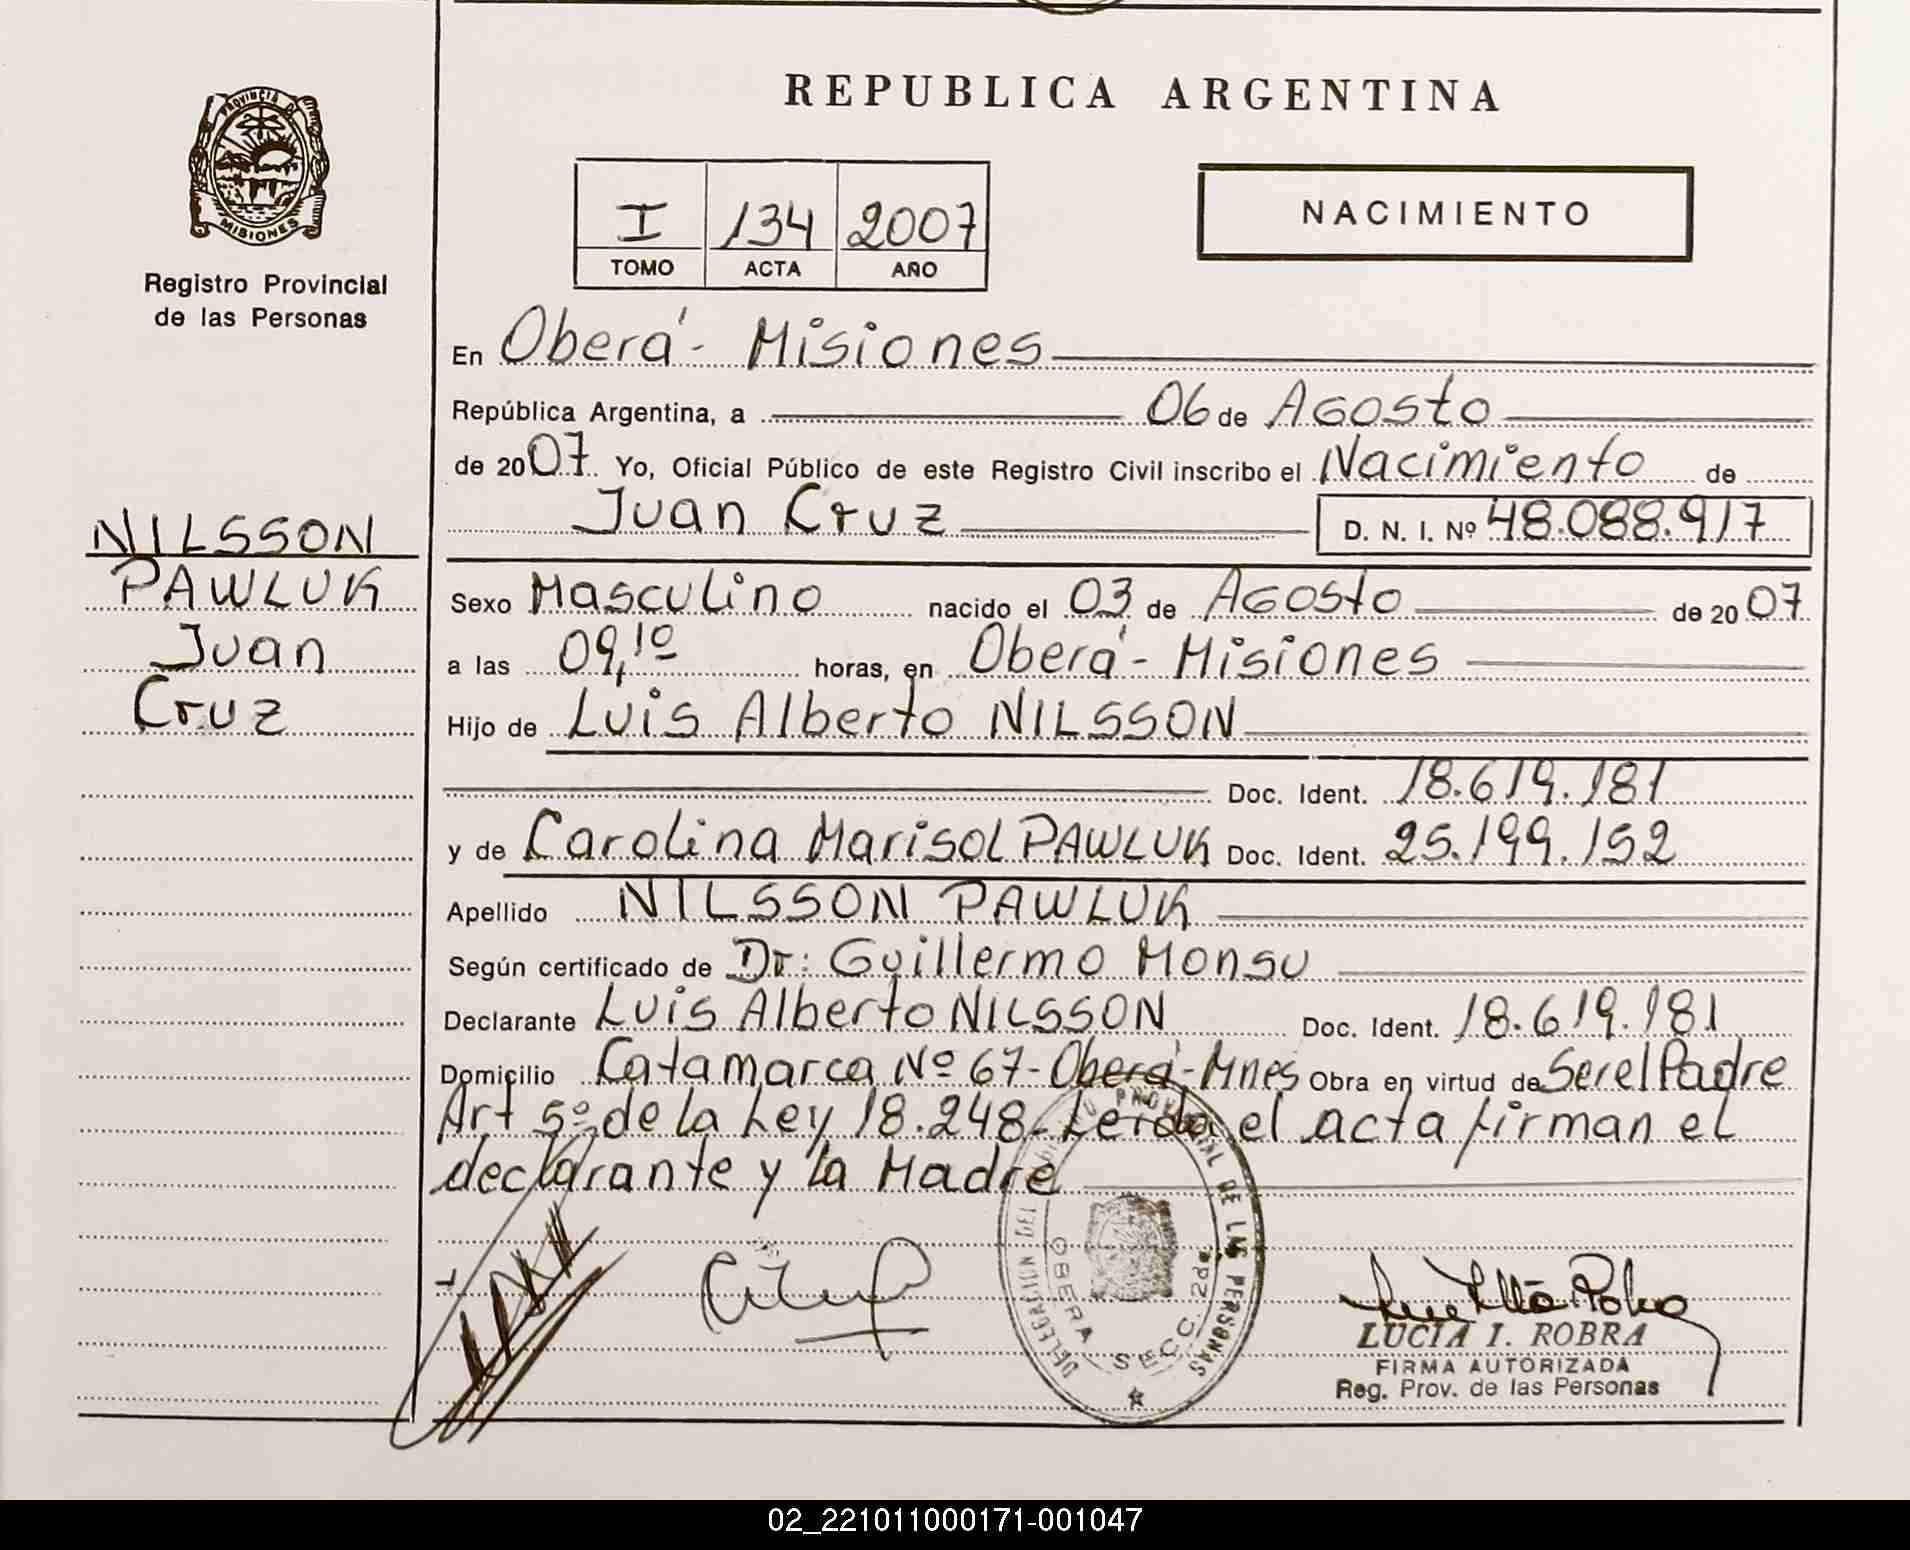 REPUBLICA ARGENTINA
PROVINCIA DE
MISIONES
Registro Provincial
de las Personas
I 134 2007
TOMO ACTA AÑO
NACIMIENTO
NILSSON
PAWLUK
Juan
Cruz
En Oberá - Misiones
República Argentina, a 06 de Agosto
de 2007. Yo, Oficial Público de este Registro Civil inscribo el Nacimiento de
Juan Cruz D. N. I. Nº 48.088.917
Sexo Masculino nacido el 03 de Agosto de 2007
a las 09,10 horas, en Oberá - Misiones
Hijo de Luis Alberto NILSSON
Doc. Ident. 18.619.181
y de Carolina Marisol PAWLUK Doc. Ident. 25.199.152
Apellido NILSSON PAWLUK
Según certificado de Dr: Guillermo Monsu
Declarante Luis Alberto NILSSON Doc. Ident. 18.619.181
Domicilio Catamarca Nº 67 - Oberá - Mnes Obra en virtud de Ser el Padre
Art 5º de la Ley 18.248 - Leida el acta firman el
declarante y la Madre
DELEGACION DEL REGISTRO PROVINCIAL DE LAS PERSONAS
OBERA SECC. 2da.
LUCIA I. ROBRA
FIRMA AUTORIZADA
Reg. Prov. de las Personas
02_221011000171-001047